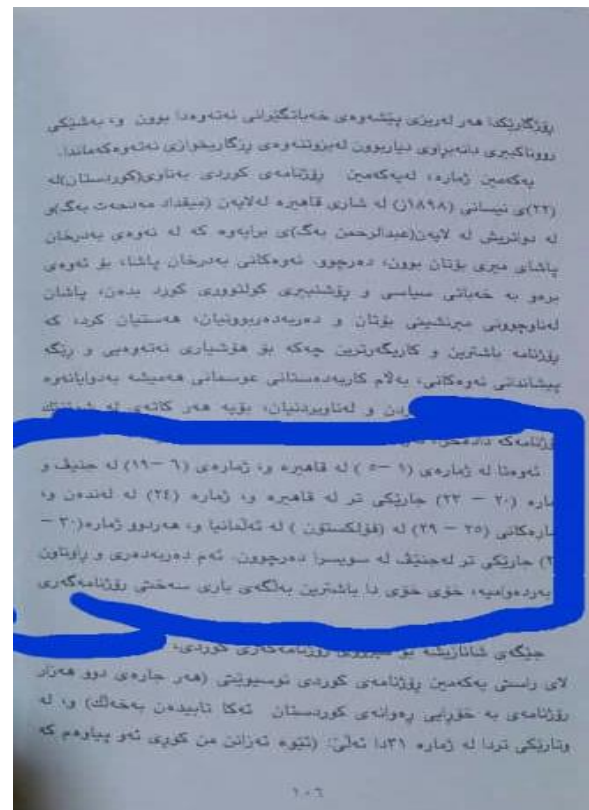 ڕۆژگارێکدا هەر لەریزی پێشەوەی خەباتگێڕانی نەتەوەدا بوون و، بەشێکی
ڕووناکبیری دانەبڕاوی دیاربوون لەبزوتنەوەی ڕزگاریخوازی نەتەوەکەماندا.
یەکەمین ژمارە، لەیەکەمین ڕۆژنامەی کوردی بەناوی(کوردستان)لە
(٢٢)ی نیسانی (١٨٩٨ز) لە شاری قاهیرە لەلایەن (میقداد مەدحەت بەگ)و
لە دواتریش لە لایەن(عبدالرحمن بەگ)ی برایەوە کە لە نەوەی بەدرخان
پاشای میری بۆتان بوون، دەرچوو. نەوەکانی بەدرخان پاشا، بۆ ئەوەی
برەو بە خەباتی سیاسی و ڕۆشنبیری کولتووری کورد بدەن، پاشان
لەناوچوونی میرنشینی بۆتان و دەربەدەربوونیان، هەستیان کرد، کە
ڕۆژنامە باشترین و کاریگەرترین چەکە بۆ هۆشیاری نەتەوەیی و ڕێگە
پیشاندانی نەوەکانی، بەڵام کاربەدەستانی عوسمانی هەمیشە بەدوایانەوە
و لەناوبردنیان، بۆیە هەر کاتەی لە شوێنێک
ئەوەتا لە ژمارەی (١ –٥ ) لە قاهیرە و، ژمارەی (٦ –١٩) لە جنیڤ و
(٢٠ – ٢٣) جارێکی تر لە قاهیرە و، ژمارە (٢٤) لە لەندەن و،
(٢٥ – ٢٩) لە (فۆلکستۆن ) لە ئەڵمانیا و، هەردوو ژمارە(٣٠ –
جارێکی تر لەجنێڤ لە سویسرا دەرچوون. ئەم دەربەدەری و ڕاوناون
بەردەوامیە، خۆی خۆی دا باشترین بەڵگەی باری سەختی ڕۆژنامەگەری
جێگەی شانازیشە بۆ مێژووی ڕۆژنامەگەری کوردی،
لای ڕاستی یەکەمین ڕۆژنامەی کوردی نوسیوێتی (هەر جارەی دوو هەزار
ڕۆژنامەی بە خۆڕایی ڕەوانەی کوردستان ئەکا تابیدەن بەخەڵک) و، لە
وتارێکی تردا لە ژمارە ٣١دا ئەڵێ: (ئێوە ئەزانن من کوڕی ئەو پیاوەم کە
١٠٦